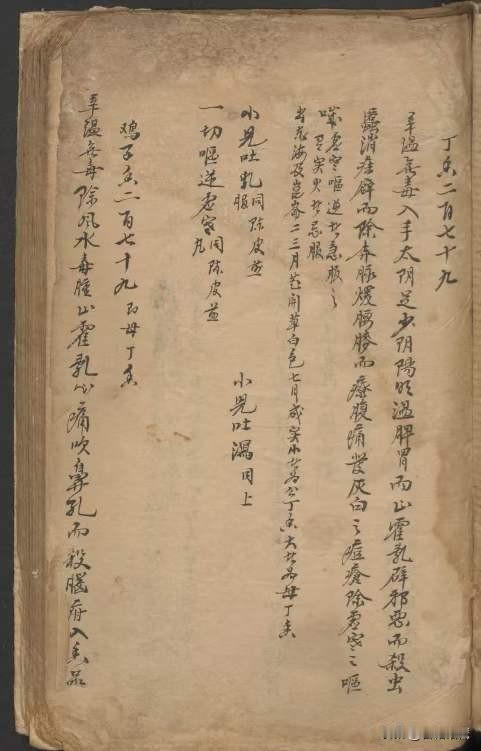 丁香二百七十九
辛温無毒入手太阴足少阴陽明温脾胃而止霍乱辟邪恶而殺虫
消痃癖而除奔豚煖腰膝而療腹痛發灰白之痘瘡除虚寒之嘔
噦虚寒嘔逆者急服之
若实火者忌服
出交海及崑崙二三月花開草白色七月成实小者為公丁香大者為母丁香
小兒吐乳同陈皮煎服 小兒吐瀉同上
一切嘔逆虚寒同陈皮煎丸
鸡子香二百七十九 即母丁香
辛温無毒除风水毒腫止霍乱心痛吹鼻孔而殺腦疳入香品